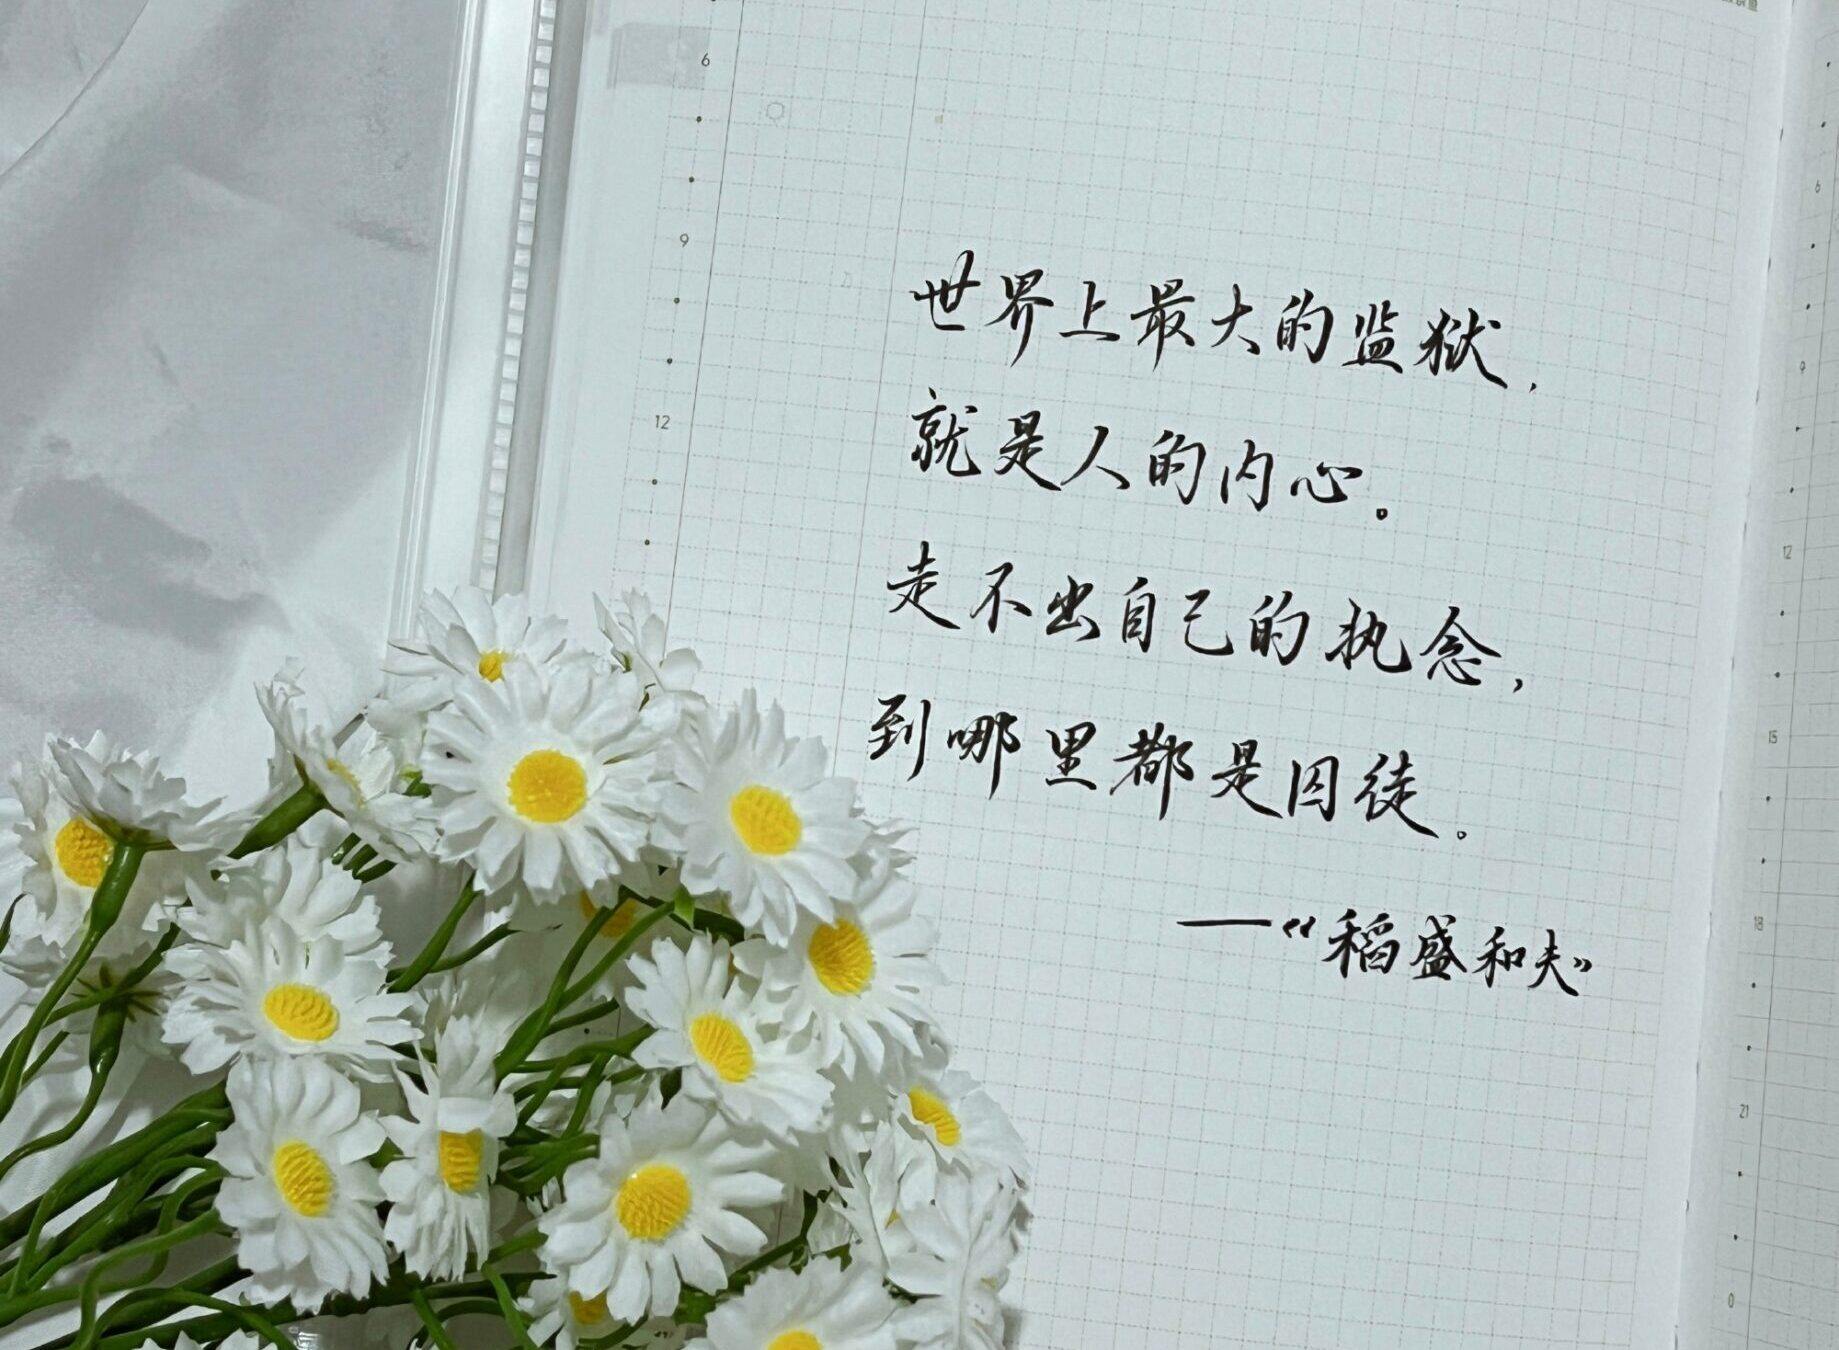 世界上最大的监狱，
就是人的内心。
走不出自己的执念，
到哪里都是囚徒。
——《稻盛和夫》
6
9
12
6
9
12
15
18
21
0